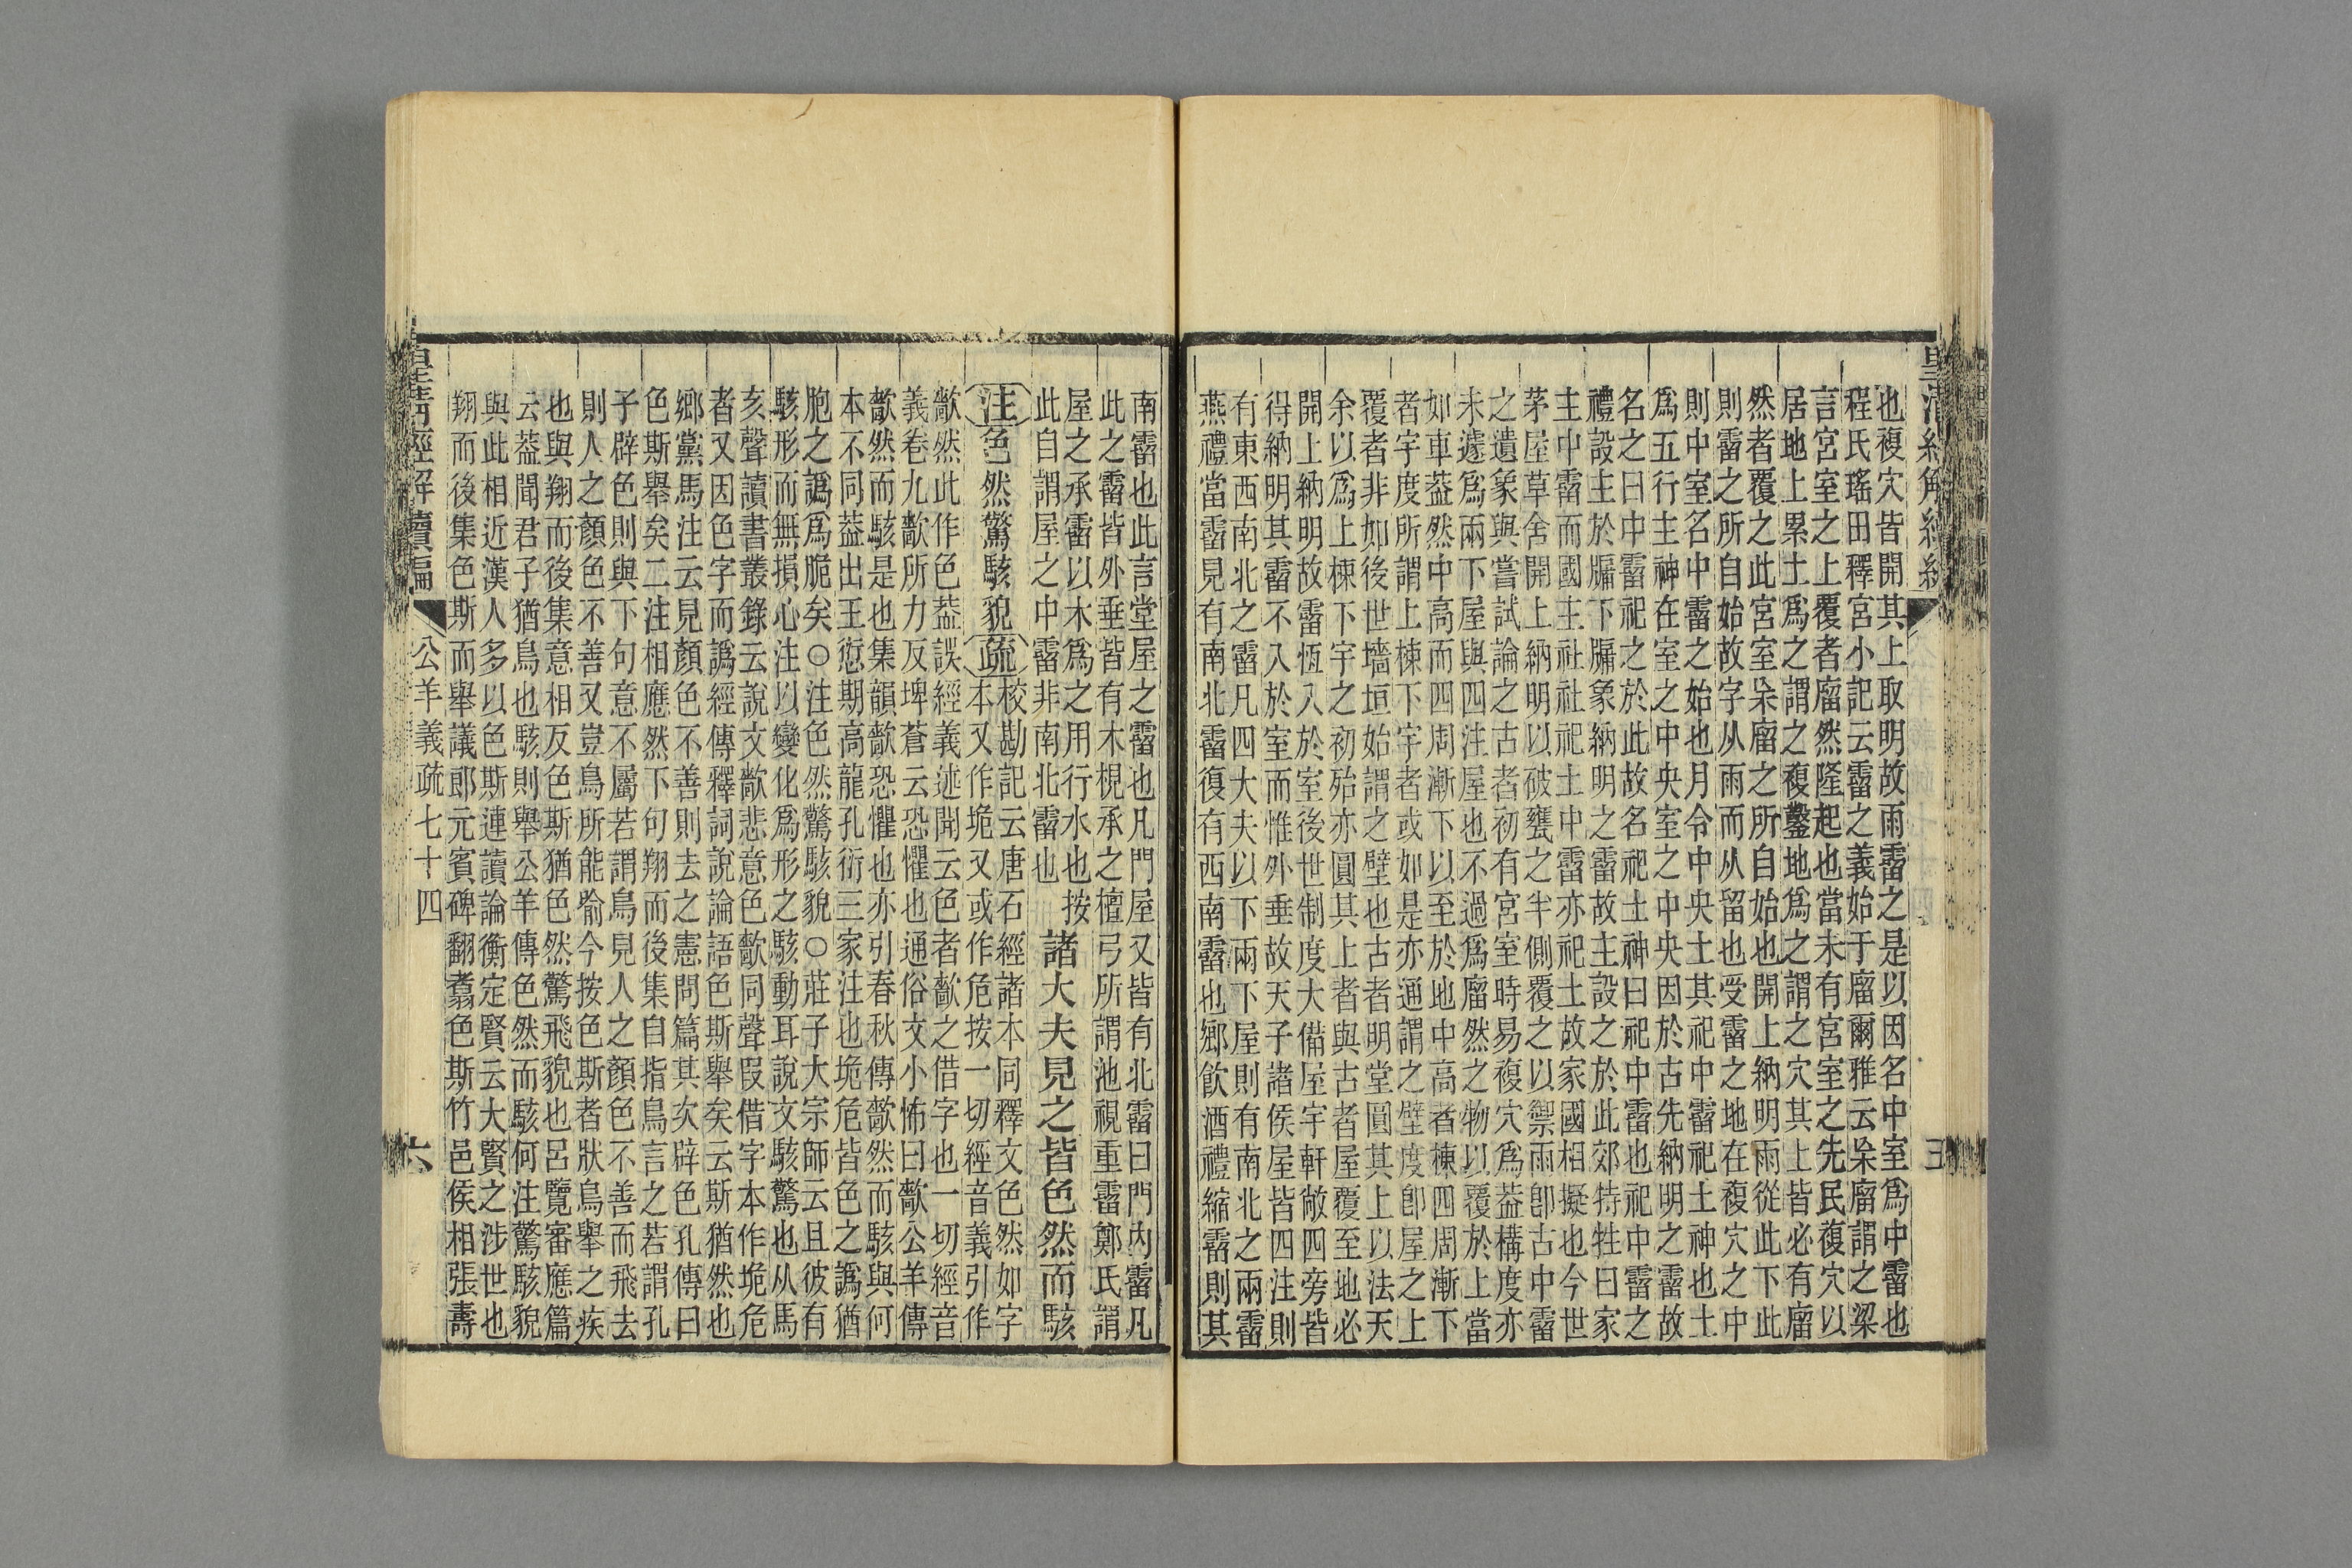 也複穴皆開其上取明故雨霤之是以因名中室爲中霤也
程氏瑤田釋宮小記云霤之義始于廇爾雅云杗廇謂之梁
言宮室之上覆者廇然隆起也當未有宮室之先民復穴以
居地上累土爲之謂之複鑿地爲之謂之穴其上皆必有廇
然者覆之此宮室杗廇之所自始也開上納明雨從此下此
則霤之所自始故字从雨而从留也受霤之地在複穴之中
則中室名中霤之始也月令中央土其祀中霤祀土神也土
爲五行主神在室之中央室之中央因於古先納明之霤故
名之曰中霤祀之於此故名祀土神曰祀中霤也祀中霤之
禮設主於牖下牖象納明之霤故主設之於此郊特牲曰家
主中霤而國主社社祀土中霤亦祀土故家國相擬也今世
茅屋草舍開上納明以破甕之半側覆之以禦雨卽古中霤
之遺象與嘗試論之古者初有宮室時易複穴爲葢構度亦
未遽爲兩下屋與四注屋也不過爲廇然之物以覆於上當
如車葢然中高而四周漸下以至於地中高者棟四周漸下
者宇度所謂上棟下宇者或如是亦通謂之壁度卽屋之上
覆者非如後世墻垣始謂之壁也古者明堂圓其上以法天
余以爲上棟下宇之初殆亦圓其上者與古者屋覆至地必
開上納明故霤恆入於室後世制度大備屋宇軒敞四旁皆
得納明其霤不入於室而惟外垂故天子諸侯屋皆四注則
有東西南北之霤凡四大夫以下兩下屋則有南北之兩霤
燕禮當霤見有南北霤復有西南霤也鄉飲酒禮縮霤則其
南霤也此言堂屋之霤也凡門屋又皆有北霤曰門內霤凡
此之霤皆外垂皆有木梘承之檀弓所謂池視重霤鄭氏謂
屋之承霤以木爲之用行水也按
此自謂屋之中霤非南北霤也
諸大夫見之皆色然而駭
注色然驚駭貌疏校勘記云唐石經諸本同釋文色然如字
本又作垝又或作危按一切經音義引作
歡然此作色葢誤經義述聞云色者歡之借字也一切經音
義卷九歡所力反埤蒼云恐懼也通俗文小怖曰歡公羊傳
歡然而駭是也集韻歡恐懼也亦引春秋傳歡然而駭與何
本不同葢出王愆期高龍孔衍三家注也垝危皆色之譌猶
胞之譌爲脆矣○注色然驚駭貌○莊子大宗師云且彼有
駭形而無損心注以變化爲形之駭動耳說文駭驚也从馬
亥聲讀書叢錄云說文歡悲意色歡同聲叚借字本作垝危
者又因色字而譌經傳釋詞說論語色斯舉矣云斯猶然也
鄉黨馬注云見顏色不善則去之憲問篇其次辟色孔傳曰
色斯舉矣二注相應然下句翔而後集自指鳥言之若謂孔
子辟色則與下句意不屬若謂鳥見人之顏色不善而飛去
則人之顏色不善又豈鳥所能喻今按色斯者狀鳥舉之疾
也與翔而後集意相反色斯猶色然驚飛貌也呂覽審應篇
云葢聞君子猶鳥也駭則舉公羊傳色然而駭何注驚駭貌
與此相近漢人多以色斯連讀論衡定賢云大賢之涉世也
翔而後集色斯而舉議郎元賓碑翻翥色斯竹邑侯相張壽
公羊義疏七十四
六